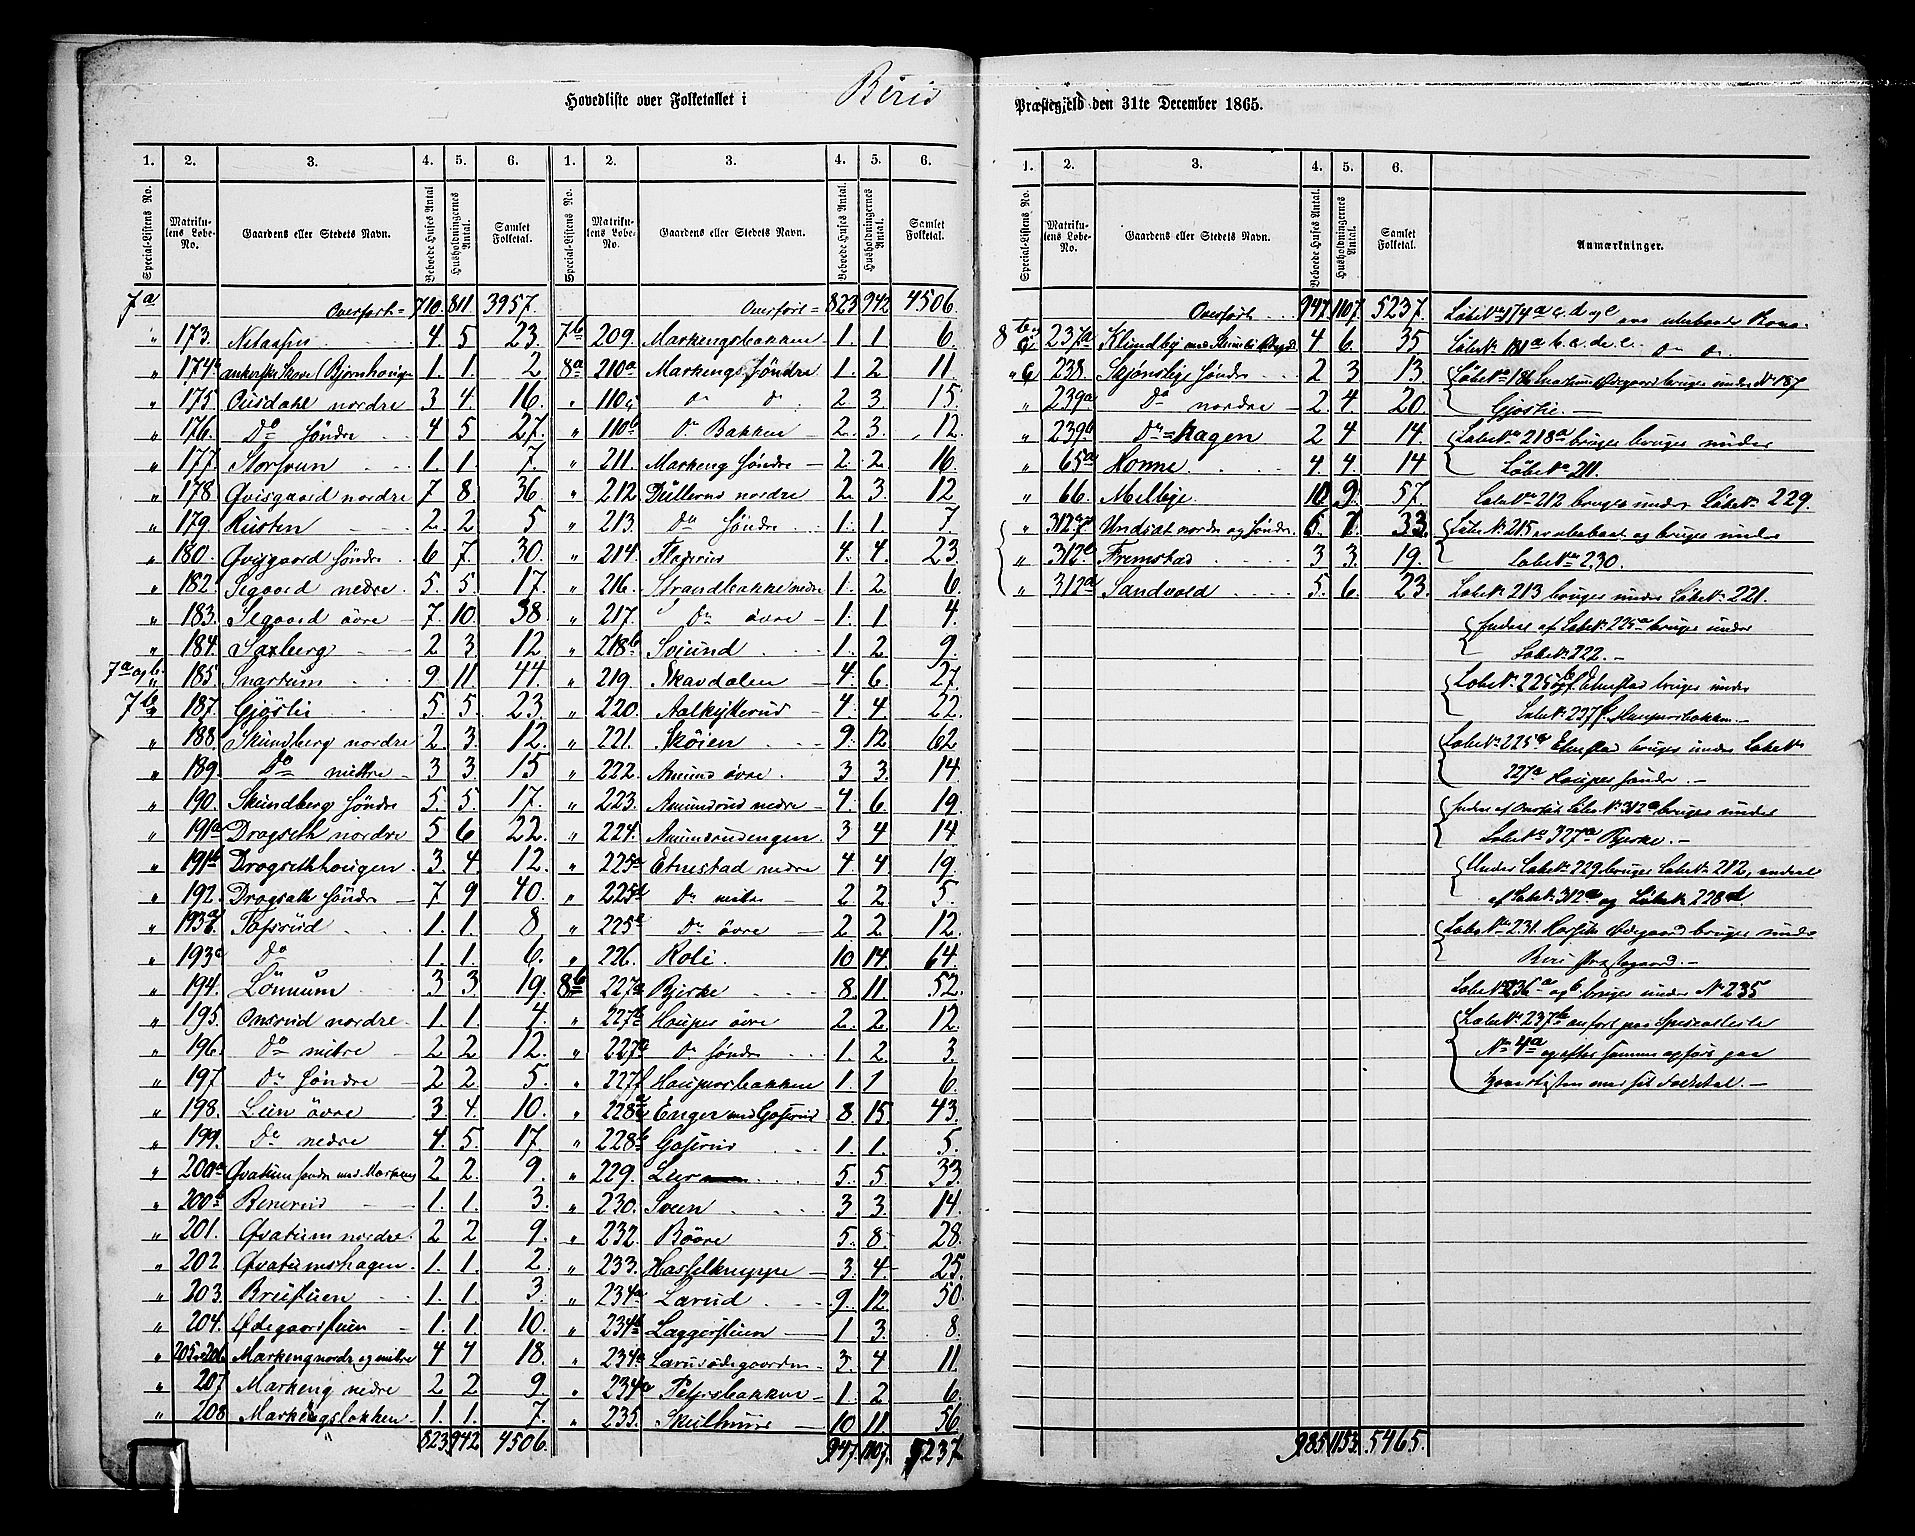 Hovedliste over Folketallet i Biri Præstegjeld den 31te December 1865.
1. 2. 3. 4. 5. 6. 1. 2. 3. 4. 5. 6.
Special-Listens No. Matrikulens Løbe-No. Gaardens eller Stedets Navn. Beboede Huses Antal. Husholdningernes Antal. Samlet Folketal. Special-Listens No. Matrikulens Løbe-No. Gaardens eller Stedets Navn. Beboede Huses Antal. Husholdningernes Antal. Samlet Folketal.
7a Overført = 710. 811. 3957.
" 173. 4. 5. 23.
" 174b (Bjørnhougen 1. 1. 2.
" 175. Ousdahl nordre 3. 4. 16.
" 176. Do søndre 4. 5. 27.
" 177. 1. 1. 7.
" 178. Øvisgaard nordre 7. 8. 36.
" 179. Rusten 2. 2. 5.
" 180. Øvisgaard søndre 6. 7. 30.
" 182. Segaard nedre 5. 5. 17.
" 183. Segaard øvre 7. 10. 38.
" 184. Saxberg 2. 3. 12.
7a og b 185. Snartum 9. 11. 44.
7b 187. Gjøsli 5. 5. 23.
" 188. Skundberg nordre 2. 3. 12.
" 189. Do mittre 3. 3. 15
" 190. Skundberg søndre 5. 5. 17.
" 191a Drogseth nordre 5. 6. 22.
" 191b Drogsethhougen 3. 4. 12.
" 192. Drogseth søndre 7. 9. 40.
" 193b 1. 1. 8.
" 193a Do 1. 1. 6.
" 194. Lønnum 3. 3. 19.
" 195. Onsrud nordre 1. 1. 4.
" 196. Do mitre 2. 2. 12.
" 197. Do søndre 2. 2. 5.
" 198. Lein øvre 3. 4. 10.
" 199. Do nedre 4. 5. 17.
" 200a Øvatum søndre med Markeng 2. 2. 9.
" 200b 1. 1. 3.
" 201. Øvatum nordre 2. 2. 9.
" 202. Øvatumshagen 1. 1. 2.
" 203. 1. 1. 3.
" 204. Ødegaardstuen 1. 1. 10.
" 205 206. Markeng nordre og mitre 4. 4. 18.
" 207. Markeng nedre 2. 2. 9.
" 208. Markengsbakken 1. 1. 7.
823. 942. 4506.
Overført = 823 942 4506.
7b 209. Markengsbakken 1. 1. 6.
8a 210a Markengs Søndre 1. 2. 11.
" 110a Do Do 2. 3. 15.
" 110b Do Bakken 2. 3. 12.
" 211. Markeng søndre 2. 2. 16.
" 212. Dullerud nordre 2. 3. 12
" 213. Do søndre 1. 1. 7.
" 214. 4. 4. 23.
" 216. Strandbakke nedre 1. 2. 6.
" 217. Do øvre 1. 1. 4.
" 218b Sviund 1. 2. 9.
" 219. Skavdalen 4. 6. 27.
" 220. Aalkytterud 4. 4. 22.
" 221. Skøien 9. 12. 62
" 222. Amund øvre 3 3. 14.
" 223. Amundrud nedre 4. 6. 19.
" 224. Amundrudengen 3 4. 14.
" 225a Etnestad nedre 4 4. 19.
" 225d Do mitre 2 2. 5.
" 225a Do øvre 2 2. 12.
" 226. Roli 10 14. 64.
8b 227a Bjerke 8. 11. 52.
" 227b Houper øvre 2. 2. 12.
" 227a Do søndre 1. 2. 3.
" 227f Houpersbakken 1. 1 6.
" 228a Enger med Goserud 8. 15. 43.
" 228b Goserud 1. 1. 5.
" 229. 5. 5. 33.
" 230. Sveen 3 3. 14.
" 232. Bøvre 5. 8. 28.
" 233. Hasselknippe 3. 4. 25.
" 234a Larud 9. 12. 50.
" 234b Laggerstuen 1. 3. 8.
" 234a Larudødegaarden 3. 4. 11.
" 234a Petersbakken 1. 2. 6.
" 235. Skulhuus 10. 11. 56.
947. 1107. 5237
1. 2. 3. 4. 5. 6.
Special-Listens No. Matrikulens Løbe-No. Gaardens eller Stedets Navn. Beboede Huses Antal. Husholdningernes Antal. Samlet Folketal. Anmærkninger.
Overført 947. 1107. 5237.
8 237a Klundby med 4 6. 35
" 238. Skjønslye søndre 2 3 13.
" 239a Do nordre 2. 4. 20
" 239b Do = Hagen 2 4 14.
" 65a Honne 4. 4. 14
" 66. Melbye 10. 9. 57.
" 312 Undsat nordre og søndre 6. 7. 33.
" 312c Fremstad 3 3. 19.
" 312a Sandvold 5. 6. 23.
985. 1153. 5465.
Løbe No 174a c. d og e ere ubeboede
Løbe No 181a b. c. de. e. Do Do
Løbe No 186 Snartum Ødegaard bruges under No 187
Gjøsli. —
Løbe No 218a bruges bruges under
Løbe No 211.
Løbe No 212 bruges under Løbe No 229.
Løbe No 215 er ubeboet og bruges under
Løbe No 230.
Løbe No 213 bruges under Løbe No 221.
Endeel af Løbe No 225a bruges under
Løbe No 222. —
Løbe No 225 Etnestad bruges under
Løbe No 227f. Houpersbakken. —
Løbe No 225 Etnestad bruges under Løbe No
227a Houper søndre. —
Endeel af Løbe No 312a bruges under
Løbe No 327a Bjerke. —
Under Løbe No 229 bruges Løbe No 212, endeel
af Løbe No 312a og Løbe No 228d.
Løbe No 231. Ødegaard bruges under
Biri Præstegaard. —
Løbe No 236a og b bruges under No 235
Løbe No 237b anført paa Specialliste
No 4a og efter samme opført paa
Hovedlisten med sit Folketal. —